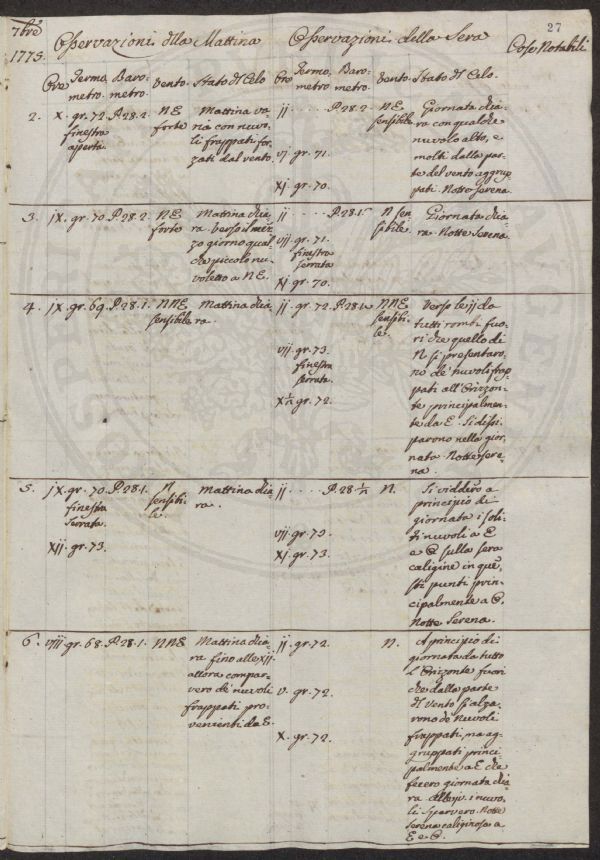 27
7bre 1775.
Osservazioni dlla Mattina
Osservazioni della Sera
Cose Notabili
Ore Termo-metro. Baro-metro. Vento. Stato dl Celo.
Ore Termo-metro. Baro-metro. Vento. Stato dl Celo.
2. X. gr. 72. P. 28.2. NE forte
finestra
aperta.
Mattina va
ria con nuvo-
li frappati for-
zati dal vento.
ij . . . . P. 28.2. NE sensibile
vj. gr. 71.
XI. gr. 70.
Giornata chia-
ra con qualche
nuvolo alto, e
molti dalla par-
te del vento aggrup-
pati. Notte Serena.
3. jX. gr. 70. P. 28.2. NE. forte
Mattina chia-
ra verso il mez-
zo giorno qual-
che piccolo nu-
voletto a NE.
ij . . . . P. 28.1. N sen-
sibile.
vij. gr. 71.
finestra
serrata
XI. gr. 70.
Giornata chia-
ra. Notte Serena.
4. jX. gr. 69. P. 28.1. NNE sensibile
Mattina chia-
ra.
ij. gr. 72. P. 28. NNE
sensibi-
le.
vij. gr. 73.
finestra
serrata.
gr. 72.
Verso le ij da
tutti rombi fuo-
ri che quello di
N si presentaro-
no de' nuvoli frap-
pati all'Orizzon-
te principalmen-
te da E. Si dissi-
parono nella gior-
nata. Notte Sere-
na.
5. jX. gr. 70. P. 28.1. N sensibi-
le.
finestra
serrata.
XII. gr. 73.
Mattina chia-
ra.
ij . . . . P. 28 N.
vij. gr. 73.
XI. gr. 73.
Si viddero a
principio di
giornata i soli-
ti nuvoli a E
e O sulla sera
caligine in que-
sti punti prin-
cipalmente a O.
Notte Serena.
6. viij. gr. 68. P. 28.1. NNE
Mattina chia-
ra fino alle XII.
allora compar-
vero de' nuvoli
frappati pro-
venienti da E.
ij. gr. 72. N.
v. gr. 72.
X. gr. 72.
A principio di
giornata da tutto
l'Orizonte fuori
che dalla parte
dl Vento s'alza-
rono de Nuvoli
frappati, ma ag-
gruppati princi
palmente a E che
fecero giornata chia
ra. i nuvo-
li sparvero. Notte
Serena caliginosa a
E e O.